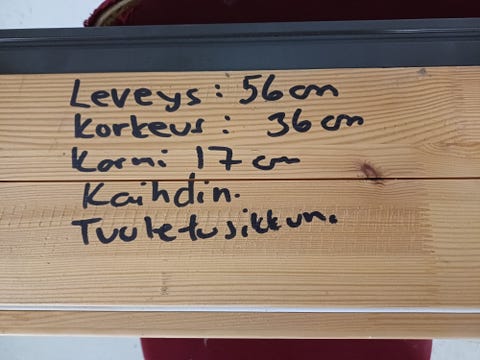 Leveys: 56cm
Korkeus: 36cm
Karmi 17cm
Kaihdin.
Tuuletusikkun.